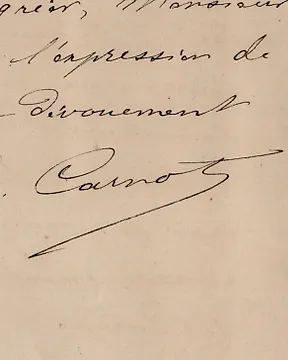 gréer, Monsieur
l'expression de
dévouement
Carnot